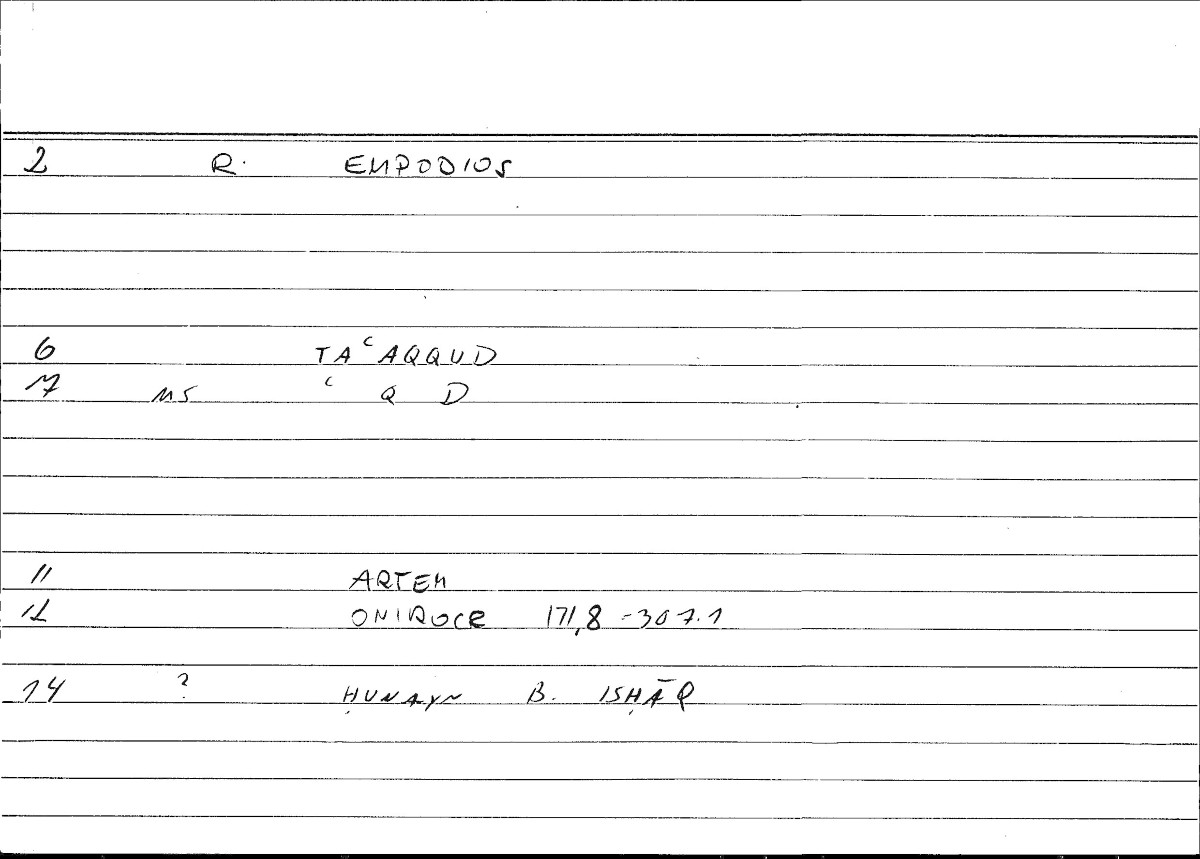 2 R. EMPODIOS
6 TAʿAQQUD
7 MS ʿ Q D
11 ARTEM
12 ONIROCR 171,8 - 307.1
14 ? ḤUNAYN B. ISḤĀQ